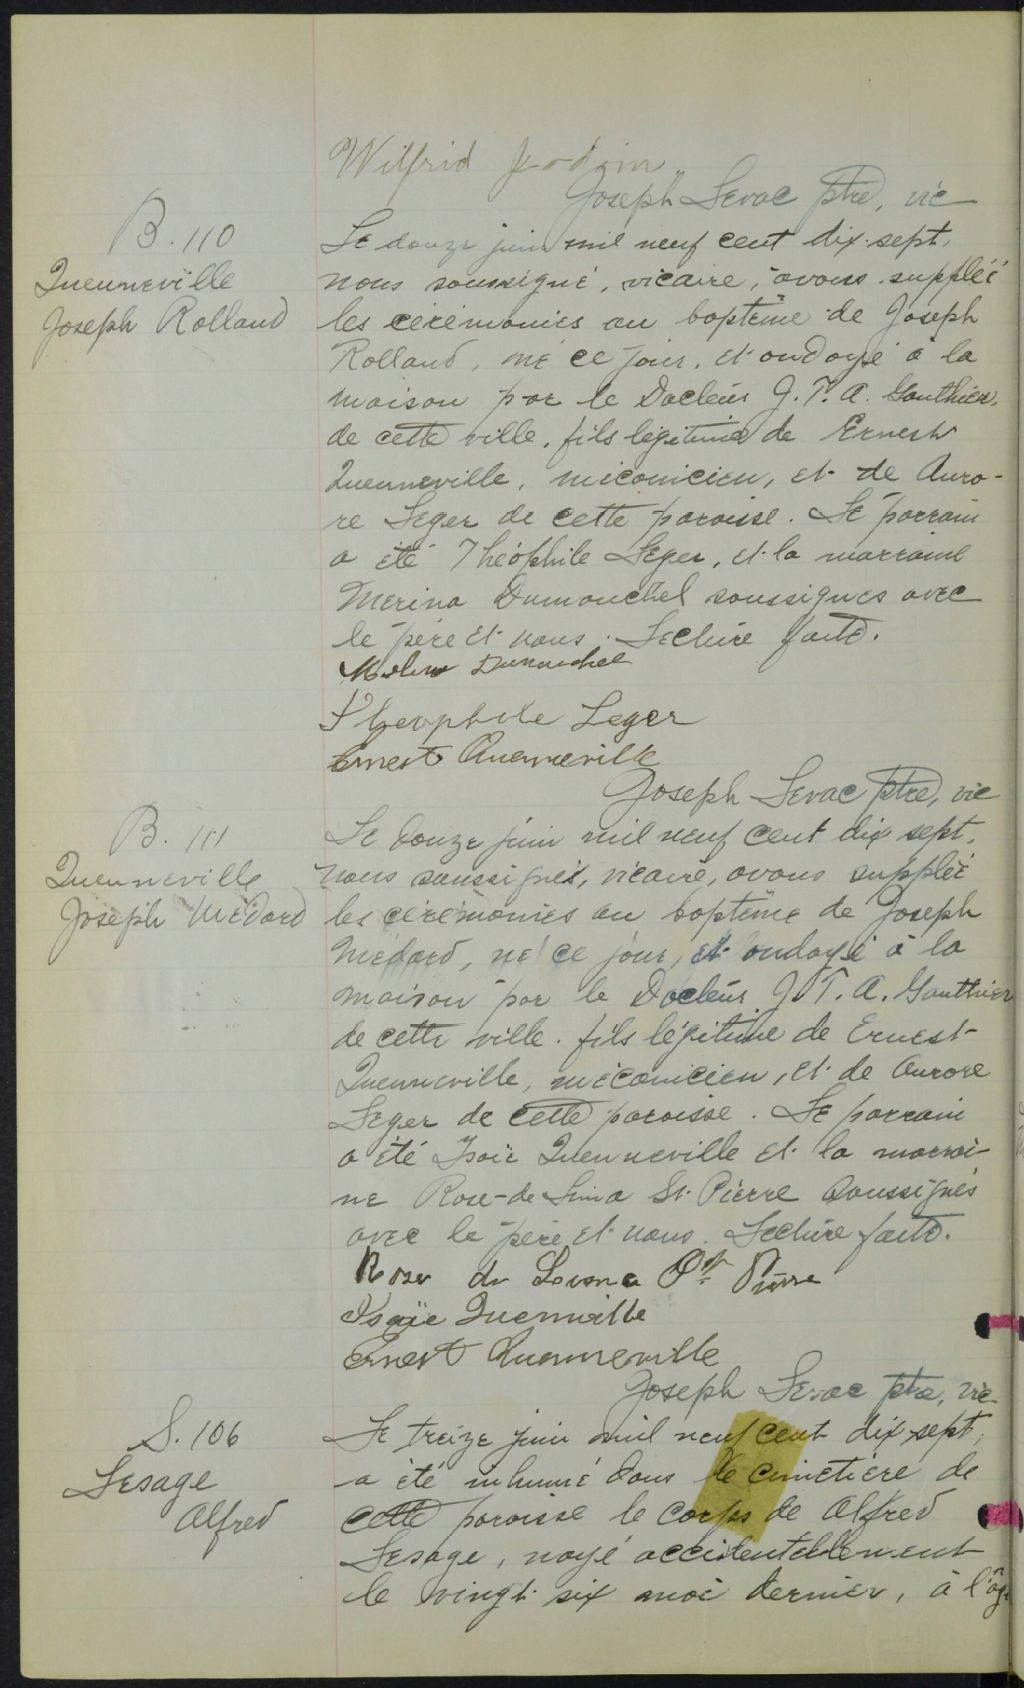 Wilfrid Jodoin
Joseph Levac ptre, vic
B. 110
Queunneville
Joseph Rolland
Le douze juin mil neuf cent dix-sept,
nous soussigné, vicaire, avons suppléé
les cérémonies au baptême de Joseph
Rolland, né ce jour, et ondoyé à la
maison par le Docteur J. T. A. Gauthier,
de cette ville, fils légitime de Ernest
Queunneville, mécanicien, et de Auro-
re Leger de cette paroisse. Le parrain
a été Théophile Leger, et la marraine
Merina Dumouchel soussignés avec
le père et nous. Lecture faite.
Dumouchel
Theophile Leger
Ernest Quenneville
Joseph Levac ptre, vic
B. 111
Queunneville
Joseph Médard
Le douze juin mil neuf cent dix sept,
nous soussigné, vicaire, avons suppléé
les cérémonies au baptême de Joseph
Médard, né ce jour, et ondoyé à la
maison par le Docteur J. T. A. Gauthier
de cette ville. fils légitime de Ernest
Queunneville, mécanicien, et de Aurore
Leger de cette paroisse. Le parrain
a été Isaïe Queunneville et la marrai-
ne Rose-de-Lima St. Pierre soussignés
avec le père et nous. Lecture faite.
Rose de Lima St Pierre
Isaïe Quenneville
Ernest Quenneville
Joseph Levac ptre, vic.
S. 106
Lesage
Alfred
Le treize juin mil neuf cent dix sept,
a été inhumé dans le cimetière de
cette paroisse le corps de Alfred
Lesage, noyé accidentellement
le vingt-six mai dernier, à l'âge